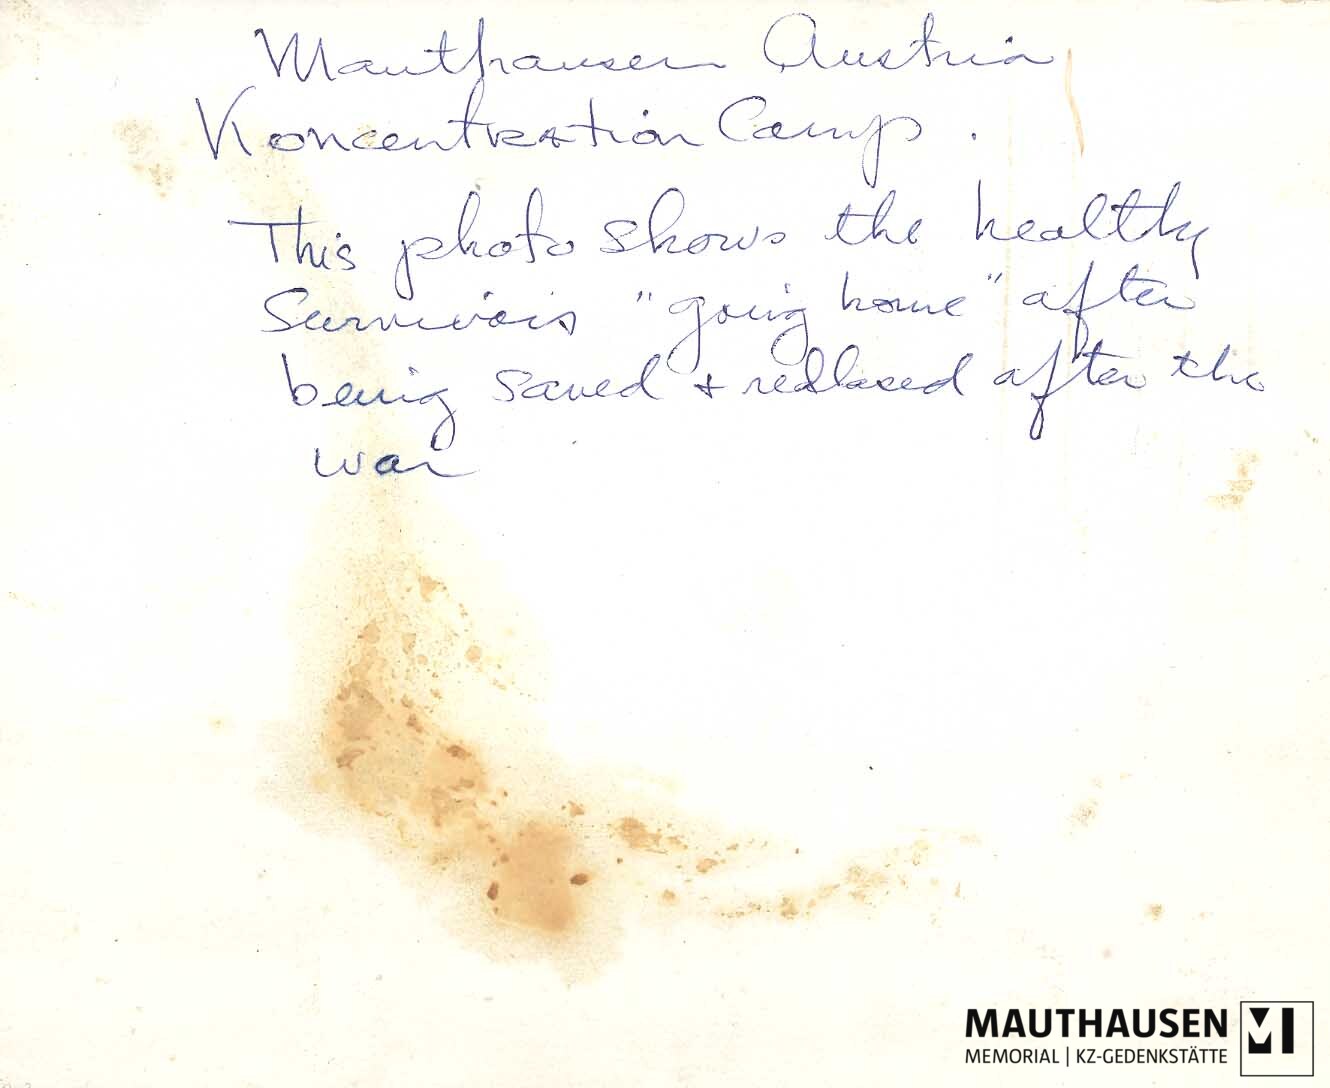 Mauthausen Austria
Koncentration Camp.
This photo shows the healthy
Survivors "going home" after
being saved + realeased after the
war
MAUTHAUSEN
MEMORIAL | KZ-GEDENKSTÄTTE